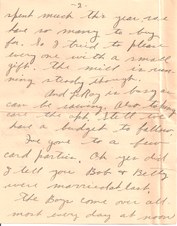 - 3 -
spent much this year, we
have so many to buy
for. So I tried to please
every one with a small
gift. The mill is run-
ning steady though.
And Roy is busy as
can be
the apt. Still we
have a budget to follow.
I've gone to a few
card parties. Oh yes did
I tell you Bob & Betty
were married at last.
The Boys come over al-
most every day at noon